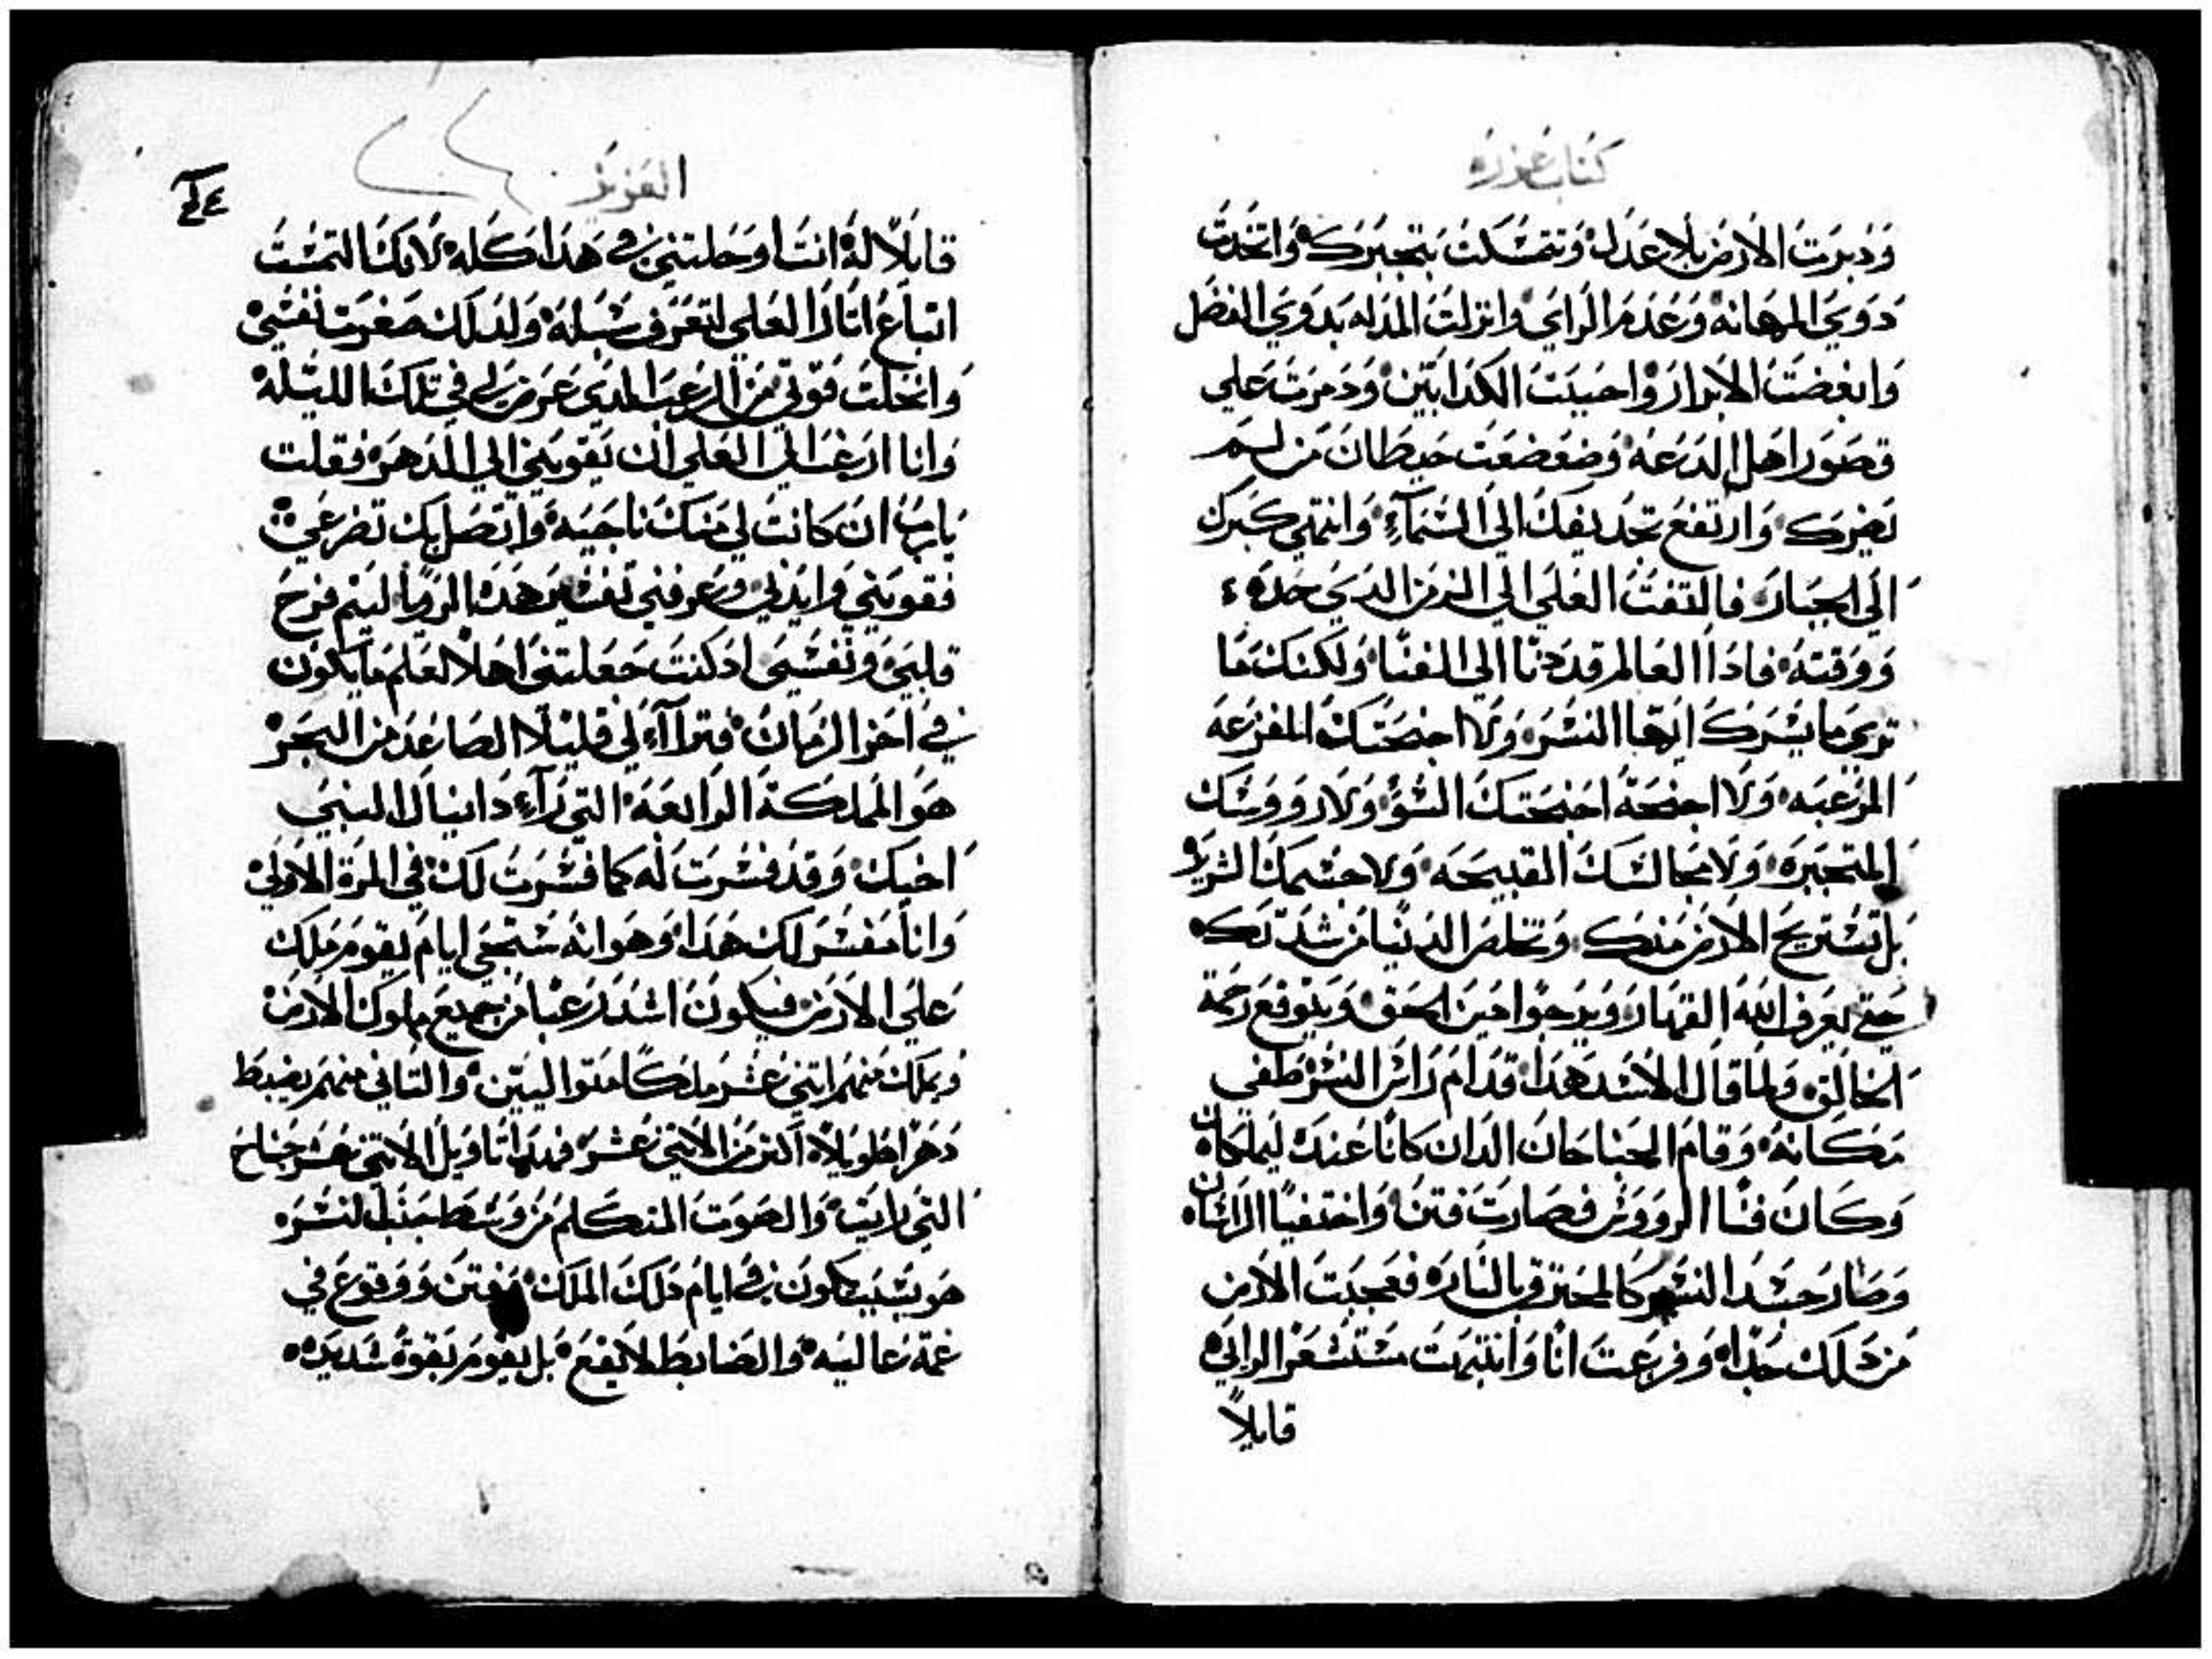 كتاب عزره
وَدبرَت الارض بلا عدل وَتمسكت بتجبرك واتخدت
دوي المهانه وَعدم الراي وانزلت المدله بدوي الفضل
وَابغضت الابرار واحبيت الكدابين وَدمرت علي
قصور اهل الدعه وَضعضعت حيطان من لم
يضرك وَارتفع تجديفك الي السمآء وانتهي كبرك
الي الجبار فالتفت العلي الي الزمن الدي حده
وَوقته فادا العالم قد دنا الي الفنا ولكنك ما
تري ما يسرك ايها النسر ولا اجنحتك المفزعه
المرعبه ولا اجنحة اجنحتك السؤ ولا رووسك
المتجبره ولا مخالسك القبيحه ولا جسمك الشرير
بل تستريح الارض منك وَتخلص الدنيا من شدتك
حتي يعرف الله القهار وَيرجوا حين الحق وَيتوقع رحمة
الخالق ولما قال الاسد هدا قدام رائس النسر طفي
مكانه وقام الجناحان الدان كانا عنده ليملكان
وكان فنا الرووس فصارت فتن واختفيا الرائسان
وصار جسد النسر كالمحترق بالنار فعجبت الارض
من دلك جدا وفزعت انا وَانتبهت مستشعر الراي
قايلاً
العزيز
٢٤
قايلاً له انت اوحلتني في هدا كله لانك التمست
اتباع اثار العلي لتعرف سبله ولدلك صغرت نفسي
وانحلت قوتي من الرعب الدي عرض لي في تلك الليله
وانا ارغب الي العلي ان يقويني الي الدهر فقلت
يارب ان كانت لي منك ناجيه واتصل بك تضرعي
فقويني وايدني وعرفني تفسير هده الرويا ليتم فرح
قلبي ونفسي اد كنت جعلتني اهلاً لعلم ما يكون
في اخر الزمان فترآاي لي قليلا الصاعد من البحر
هو المملكة الرابعه التي رآء دانيال النبي
اخيك وقد فسرت له كما فسرت لك في المرة الاولي
وانا مفسر لك هدا وهو انه ستجي ايام يقوم ملك
علي الارض فيكون اشد رعبا من جميع ملوك الارض
ويملك منهم اتني عشر ملكا متواليين والتاني منهم يضبط
دهراً طويلاً اكتر من الاتني عشر فهدا تاويل الاتني عشر جناح
التي رايت والصوت المتكلم من وسط جنب النسر
هو بسبب يكون في ايام دلك الملك وفتن ووقوع في
غمة عاليه والضابط لا يقع بل يقوم بقوة شديده